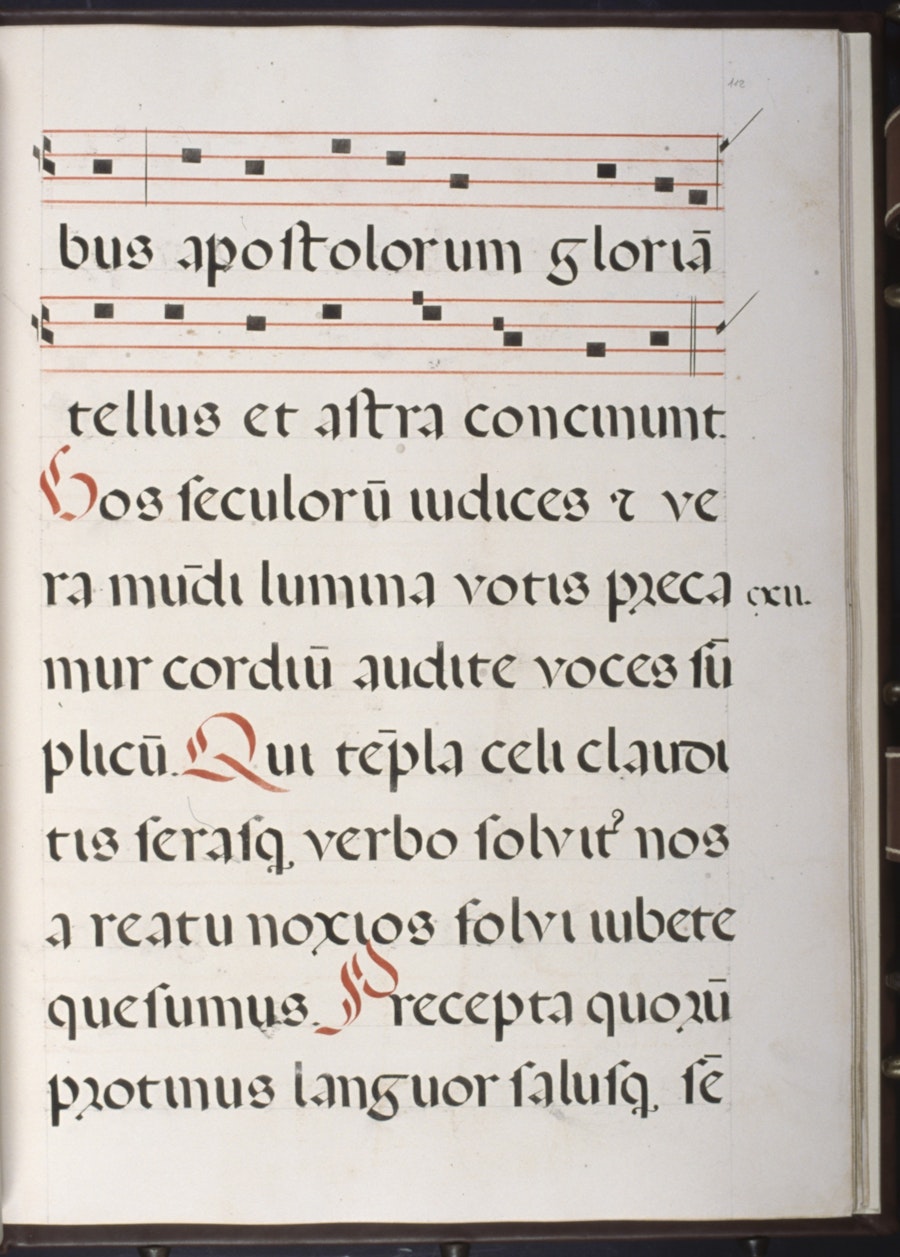 112
bus apoſtolorum gloriā
tellus et aſtra concinunt.
Vos ſeculorū iudices ⁊ ve
ra mūdi lumina votis preca
cxii.
mur cordiū audite voces ſū
plicū. Qui tēpla celi claudi
tis ſeraſq, verbo ſolvit᾽ nos
a reatu noxios ſolvi iubete
queſumus. Precepta quorū
protinus languor ſaluſq, ſē